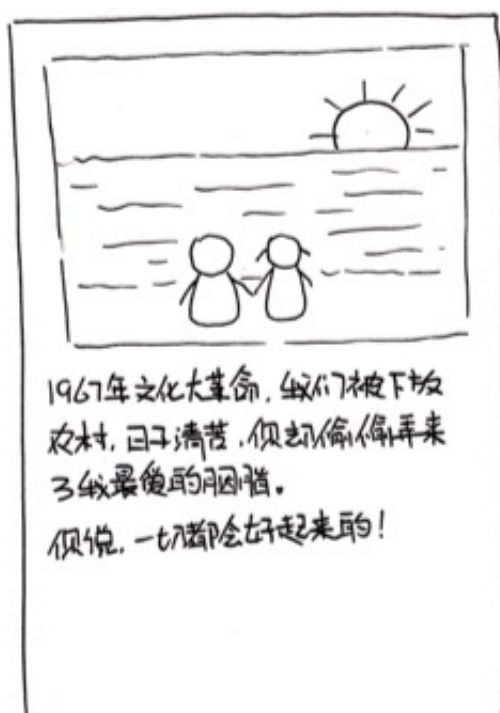 1967年文化大革命,我们被下放
农村,日子清苦,但却偷偷弄来
了我最爱的胭脂。
但说,一切都会好起来的!